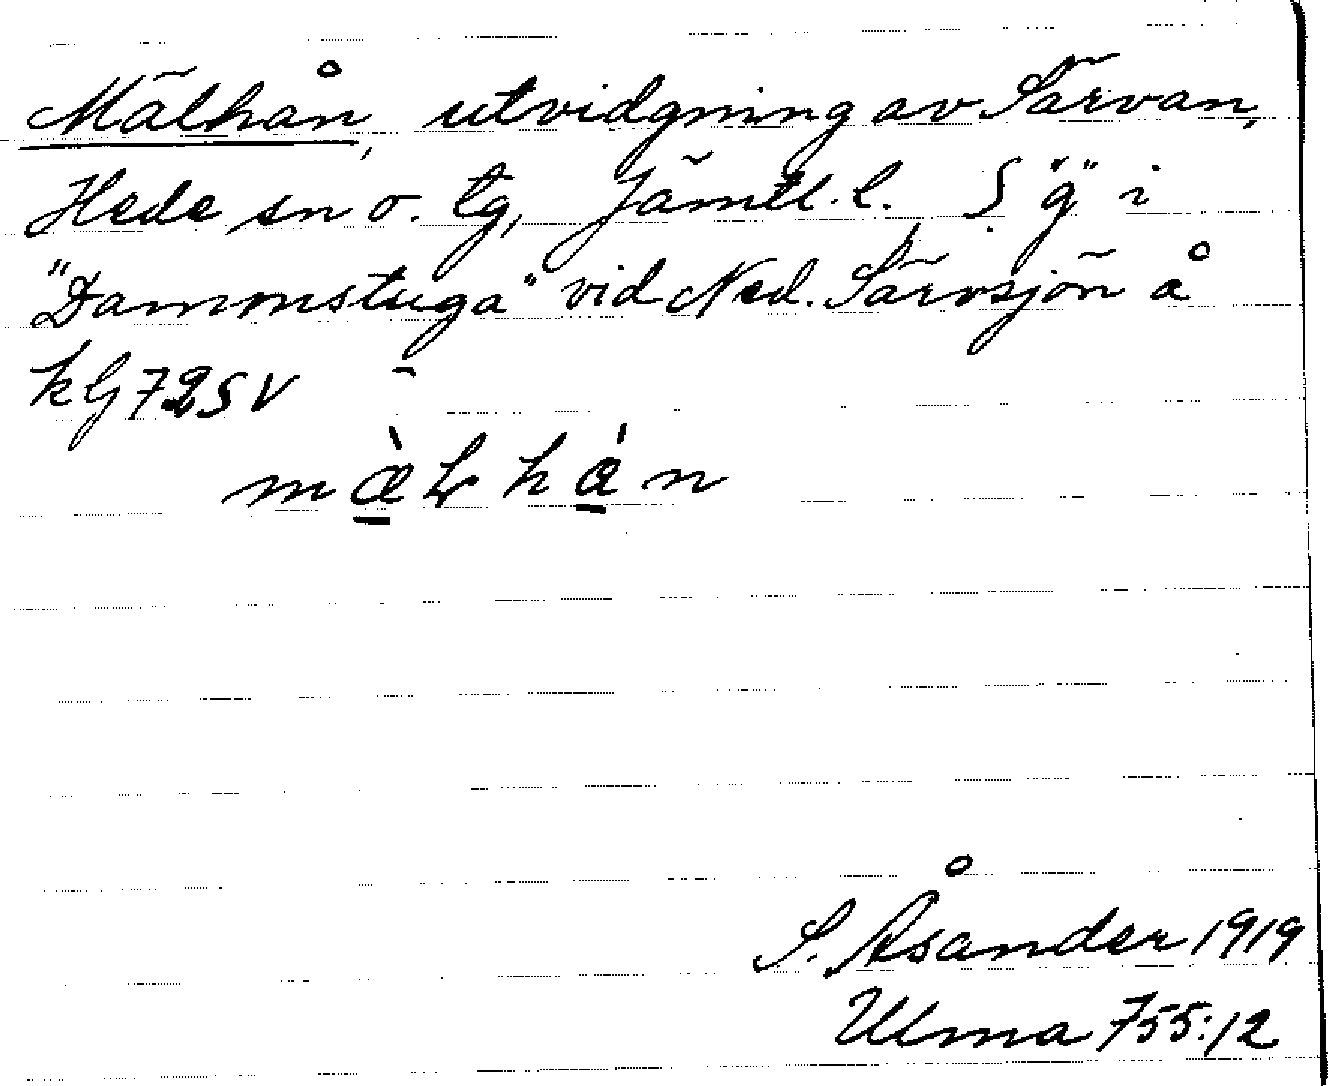 Mälhån, utvidgning av Särvan,
Hede sn o. tg, Jämtl. l. S "g" i
"Dammstuga" vid Ned. Särvsjön å
kbl 72 SV
S. Åsander 1919
Ulma 755:12